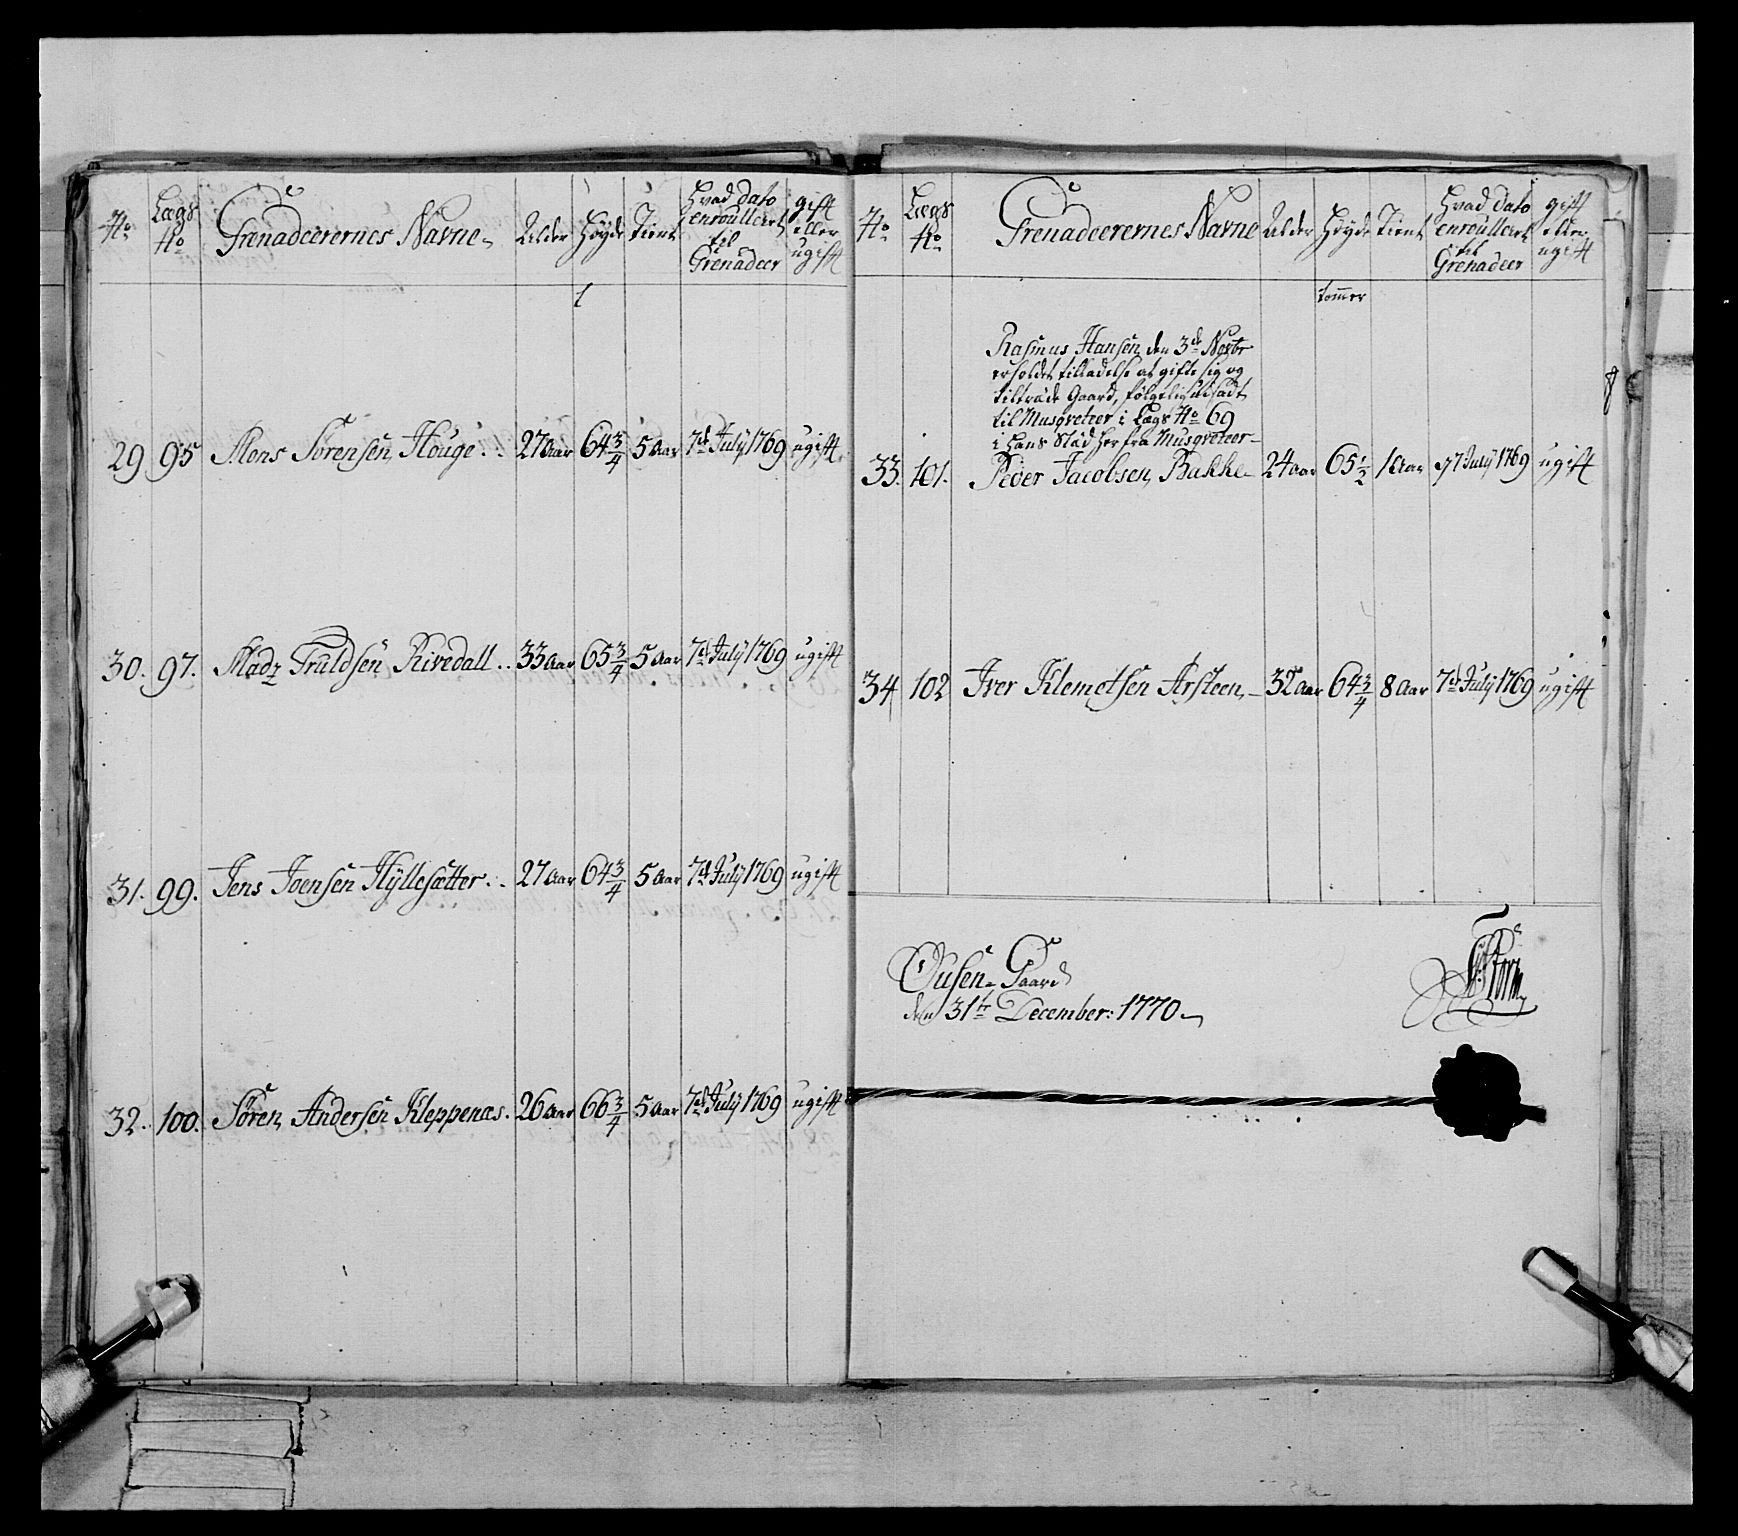 No Lægs No Grenadeerernes Navne Alder Høyde Tient Hvad dato enroullert til Grenadeer gift eller ugift
29 95 Mons Sørensen Houge 27 Aar 64 3/4 5 Aar 7de July 1769 ugift
30. 97. Madz Truldsen Rivedall 33 Aar 65 3/4 5 Aar 7de July 1769 ugift
31. 99. Jens Joensen Hÿllesætter 27 Aar 64 3/4 5 Aar 7de July 1769 ugift
32. 100. Søren Andersen Kleppenæs 26 Aar 66 3/4 5 Aar 7de July 1769 ugift
No Lægs No Grenadeerernes Navne Alder Høyde Tient Hvad dato enroullert til Grenadeer gift eller ugift
tommer
Rasmus Hansen den 3de Novbr
erholdet tilladelse at gifte sig og
tiltræde Gaard, følgelig udsadt
til Musqveteer i Lægs No 69
i Hans Stæd herfra Musqveteer
33. 101. Peder Jacobsen Bakke 24 aar 65 1/2 1 Aar July 1769 ugift
34 102 Iver Klemetsen Arsteen 32 Aar 64 3/4 8 Aar 7de July 1769 ugift
Ousen Gaard
den 31te December: 1770
Storm